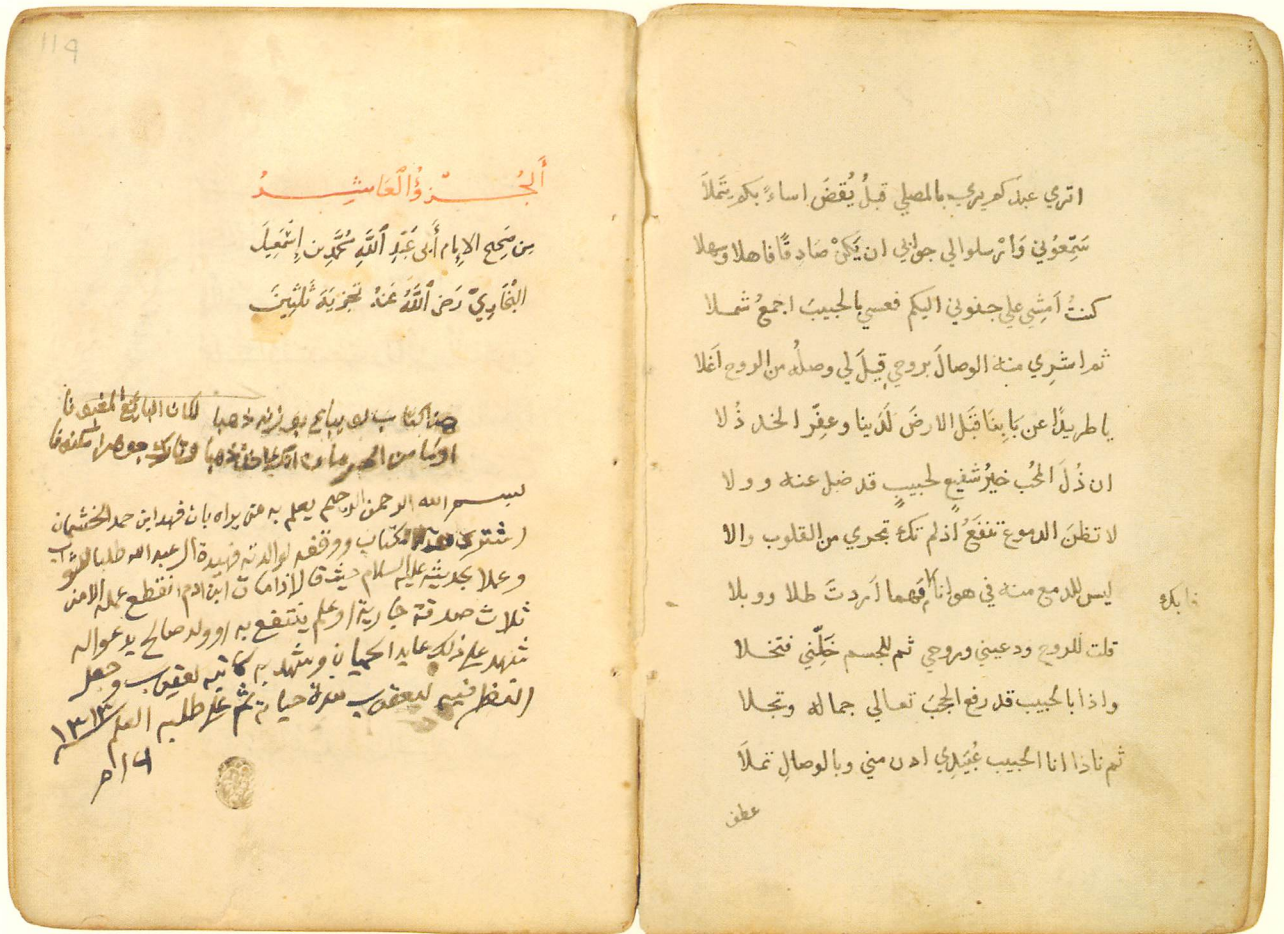 اتري عبدكم يري بالمصلي قبلُ يُقضَ اساءً بكم يتملاَ
سَمِّعوُني وَاَرْسلوا لي جوابي ان يَكنْ صَادِقًا فاهلا وسهلا
كنتُ اَمِشِي علي جفوني اليكم فعسي بالحبيبَ اجمعُ شملا
ثم اشرِي منه الوصالَ بروحي قِيلَ لي وصلُه من الروح اَغلا
يا طريدًا عن بَابِنَا قَبَل الارضَ لَدَينا وعفِّر الخد ذُلا
ان ذُلَ المحُب خيرُ شفيعٍ لحبيبٍ قد ضل عنه وولا
لا تظنَ الدموعَ تنفَعُ اذلم تكن تجري من القلوب والا
ليس للدمع منه في هوانا فمهما اَردتَ طلا ووبلا
فابك
قلت للروح ودعيني وروحي ثم للجسم خَلِّنِي فتخلا
واذا بالحبيب قد رفع الحجبَ تعالي جماله وتجلا
ثم نادا انا الحبيب عُبَيدِي ادن مني وبالوصالِ تملاَ
عطف
119
أَلجُزْؤُ الْعَاشِرُ
مِن صَحِيح الاِمام أَبى عَبْدِ ٱللَّهِ مُحَمَّدِ بن إِسْمٰعِيلَ
البُخَارِيّ رَضى ٱللَّهُ عَنْهُ تَجزِيَةَ ثَلثِينَ
هذا الكتاب لو يباع بوزنه ذهبا لكان البايع المغبونا
اوما من الخسران انك اخذ ذهبا وتارك جوهرا مكنونا
بسم الله الرحمن الرحيم يعلم به من يراه بان فهد ابن حمد الخشمان
اشترى هذا الكتاب ووقفه لوالدته فهيدة ال عبدالله طلبا للثواب
وعملا بحديثه عليه السلام حيث قال اذا مات ابن ادم انقطع عمله الا من
ثلاث صدقة جارية او علم ينتفع به او ولد صالح يدعو اله
شهد على ذلك عايد الحميان وشهد به كاتبه يعقوب وجعل
النظر فيه ليعقوب مدة حياته ثم على طلبه العلم ١٣١٣